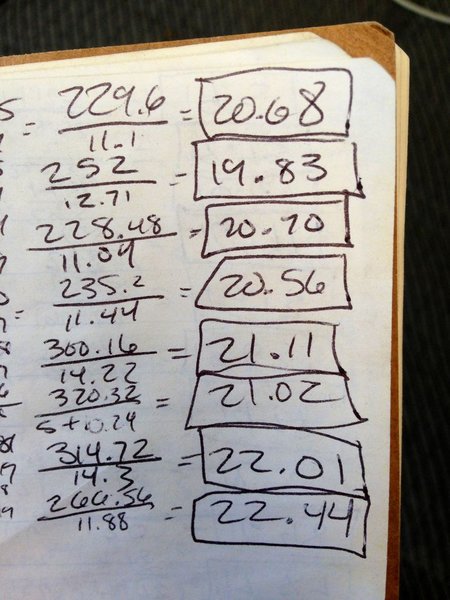 = 229.6 / 11.1 = 20.68
252 / 12.71 = 19.83
228.48 / 11.04 = 20.70
= 235.2 / 11.44 = 20.56
300.16 / 14.22 = 21.11
320.32 / 5+10.24 = 21.02
314.72 / 14.3 = 22.01
266.56 / 11.88 = 22.44